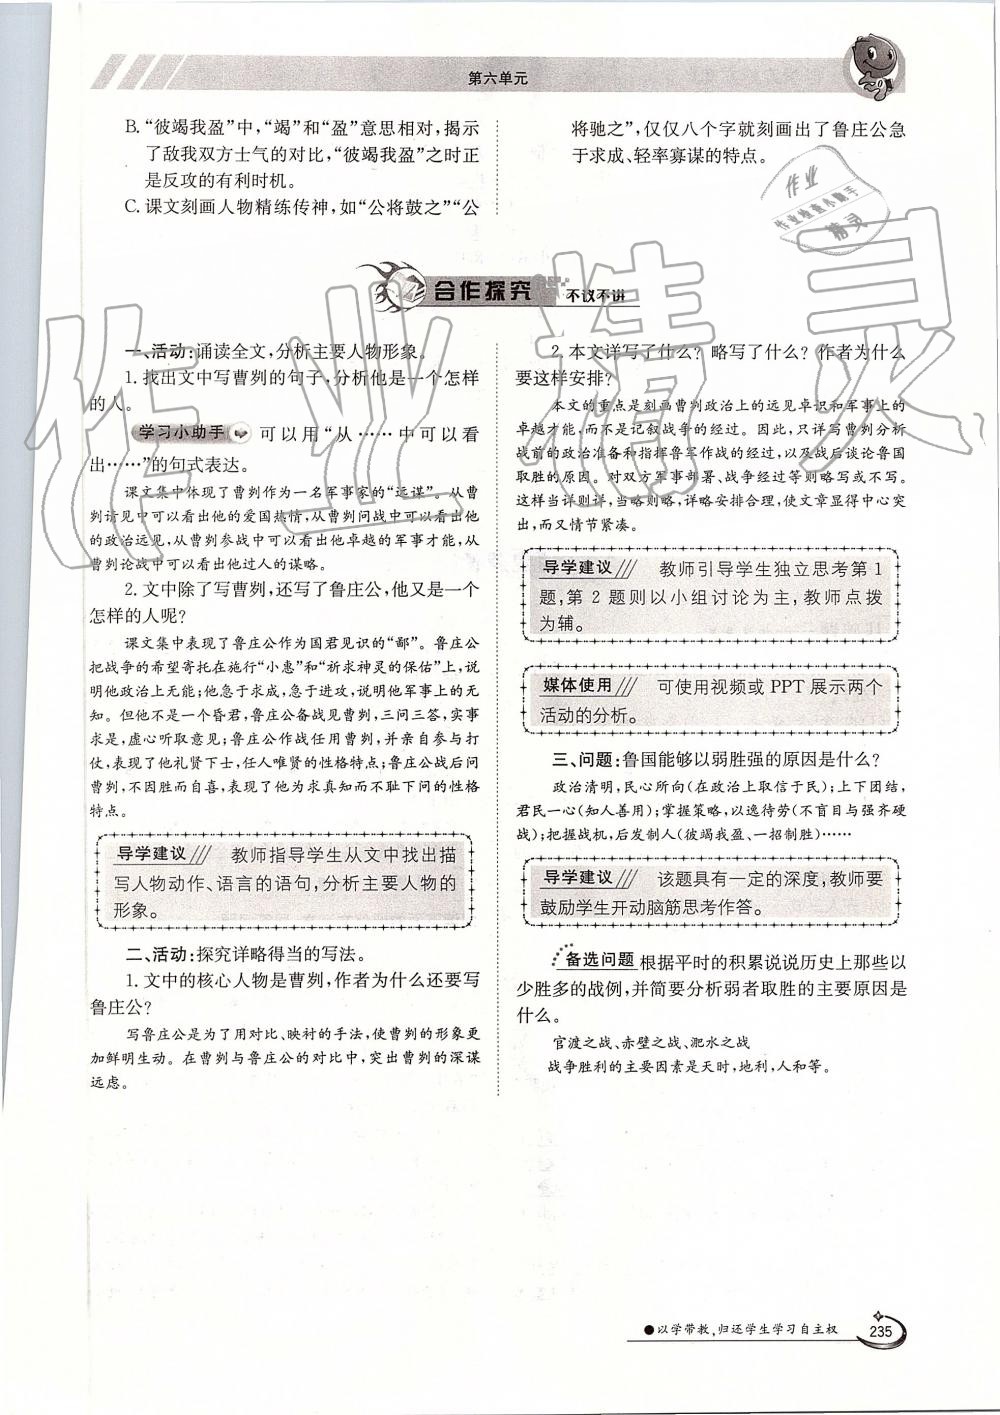 第六单元
B. “彼竭我盈”中，“竭”和“盈”意思相对，揭示
了敌我双方士气的对比，“彼竭我盈”之时正
是反攻的有利时机。
C. 课文刻画人物精练传神，如“公将鼓之”“公
将驰之”，仅仅八个字就刻画出了鲁庄公急
于求成、轻率寡谋的特点。
作业
作业检查小助手
精灵
合作探究 不议不讲
一、活动：诵读全文，分析主要人物形象。
1. 找出文中写曹刿的句子，分析他是一个怎样
的人。
学习小助手 可以用“从……中可以看
出……”的句式表达。
课文集中体现了曹刿作为一名军事家的“远谋”。从曹
刿请见中可以看出他的爱国热情，从曹刿问战中可以看出他
的政治远见，从曹刿参战中可以看出他卓越的军事才能，从
曹刿论战中可以看出他过人的谋略。
2. 文中除了写曹刿，还写了鲁庄公，他又是一个
怎样的人呢？
课文集中表现了鲁庄公作为国君见识的“鄙”。鲁庄公
把战争的希望寄托在施行“小惠”和“祈求神灵的保佑”上，说
明他政治上无能；他急于求成，急于进攻，说明他军事上的无
知。但他不是一个昏君，鲁庄公备战见曹刿，三问三答，实事
求是，虚心听取意见；鲁庄公作战任用曹刿，并亲自参与打
仗，表现了他礼贤下士，任人唯贤的性格特点；鲁庄公战后问
曹刿，不因胜而自喜，表现了他为求真知而不耻下问的性格
特点。
导学建议 教师指导学生从文中找出描
写人物动作、语言的语句，分析主要人物的
形象。
二、活动：探究详略得当的写法。
1. 文中的核心人物是曹刿，作者为什么还要写
鲁庄公？
写鲁庄公是为了用对比、映衬的手法，使曹刿的形象更
加鲜明生动。在曹刿与鲁庄公的对比中，突出曹刿的深谋
远虑。
2. 本文详写了什么？略写了什么？作者为什么
要这样安排？
本文的重点是刻画曹刿政治上的远见卓识和军事上的
卓越才能，而不是记叙战争的经过。因此，只详写曹刿分析
战前的政治准备和指挥鲁军作战的经过，以及战后谈论鲁国
取胜的原因。对双方军事部署、战争经过等则略写或不写。
这样当详则详，当略则略，详略安排合理，使文章显得中心突
出，而又情节紧凑。
导学建议 教师引导学生独立思考第 1
题，第 2 题则以小组讨论为主，教师点拨
为辅。
媒体使用 可使用视频或 PPT 展示两个
活动的分析。
三、问题：鲁国能够以弱胜强的原因是什么？
政治清明，民心所向（在政治上取信于民）；上下团结，
君民一心（知人善用）；掌握策略，以逸待劳（不盲目与强齐硬
战）；把握战机，后发制人（彼竭我盈、一招制胜）……
导学建议 该题具有一定的深度，教师要
鼓励学生开动脑筋思考作答。
备选问题 根据平时的积累说说历史上那些以
少胜多的战例，并简要分析弱者取胜的主要原因是
什么。
官渡之战、赤壁之战、淝水之战
战争胜利的主要因素是天时，地利，人和等。
作业精灵
●以学带教，归还学生学习自主权
235